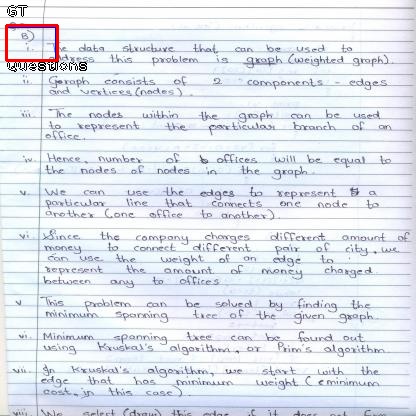 GT
B)
i. The data structure that can be used to
address this problem is graph (weighted graph).
Questions
ii. Graph consists of 2 components - edges
and vertices (nodes).
iii. The nodes within the graph can be used
to represent the particular branch of an
office.
iv. Hence, number of offices will be equal to
the nodes of nodes in the graph.
v. We can use the edges to represent a
particular line that connects one node to
another (one office to another).
vi. Since the company charges different amount of
money to connect different pair of city, we
can use the weight of an edge to
represent the amount of money charged
between any to offices.
v This problem can be solved by finding the
minimum spanning tree of the given graph.
vi. Minimum spanning tree can be found out
using Kruskal's algorithm, or Prim's algorithm.
vii. In Kruskal's algorithm, we start with the
edge that has minimum weight (minimum
cost, in this case).
viii. We select (draw) this edge if it does not form